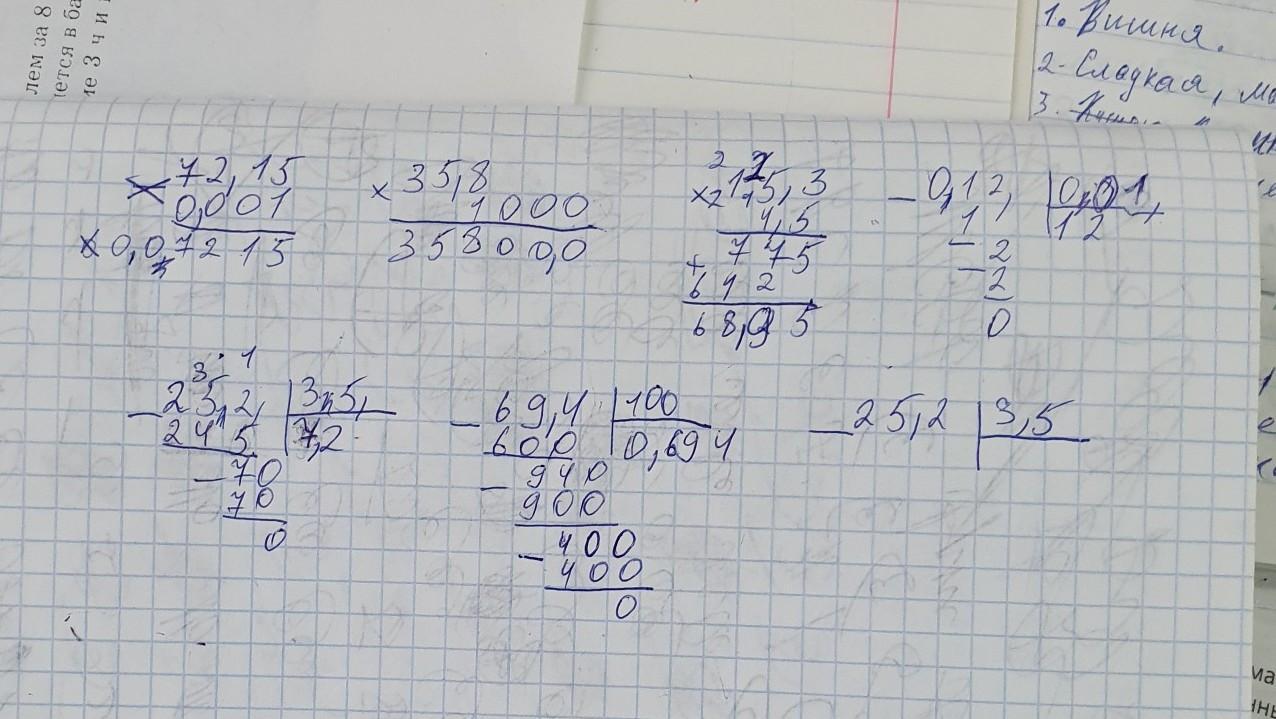 лем за 8
ется в ба
ие 3 ч и
1. Вишня.
2. Сладкая, ма
3.
× 72,15
0,001
0,07215
× 35,8
1000
35800,0
2 2
× 15,3
4,5
+ 775
612
68,95
− 0,12, | 0,01,
1 | 12
− 2
2
0
3 1
− 25,2, | 3,5,
245 | 7,2
− 70
70
0
− 69,4 | 100
600 | 0,694
− 940
900
− 400
400
0
− 25,2 | 3,5
ма